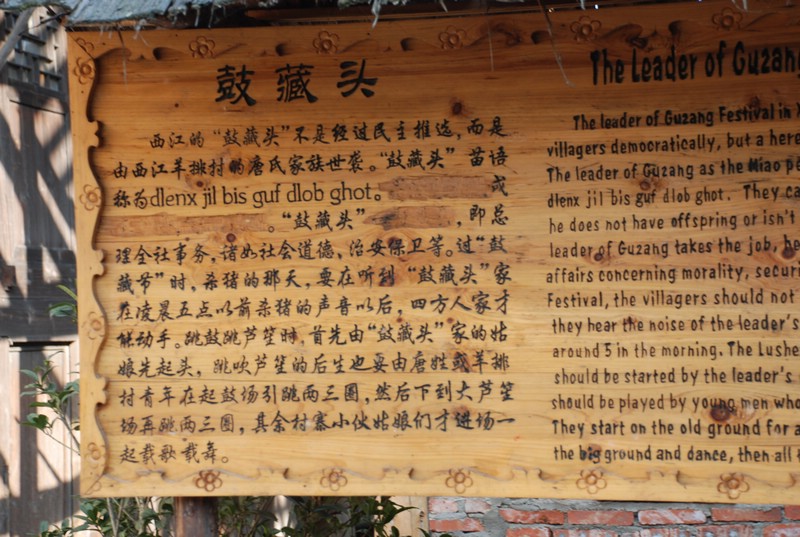 鼓藏头
西江的“鼓藏头”不是经过民主推选，而是
由西江羊排村的唐氏家族世袭。“鼓藏头”苗语
称为dlenx jil bis guf dlob ghot。 或
。“鼓藏头” ，即总
理全社事务，诸如社会道德，治安保卫等。过“鼓
藏节”时，杀猪的那天，要在听到“鼓藏头”家
在凌晨五点以前杀猪的声音以后，四方人家才
能动手。跳鼓跳芦笙时，首先由“鼓藏头”家的姑
娘先起头，跳吹芦笙的后生也要由唐姓或羊排
村青年在起鼓场引跳两三圈，然后下到大芦笙
场再跳两三圈，其余村寨小伙姑娘们才进场一
起载歌载舞。
The Leader of Guzang
The leader of Guzang Festival in
villagers democratically, but a here
The leader of Guzang as the Miao pe
dlenx jil bis guf dlob ghot. They ca
he does not have offspring or isn't
leader of Guzang takes the job, he
affairs concerning morality, securi
Festival, the villagers should not
they hear the noise of the leader's
around 5 in the morning. The Lushe
should be started by the leader's
should be played by young men who
They start on the old ground for a
the big ground and dance, then all